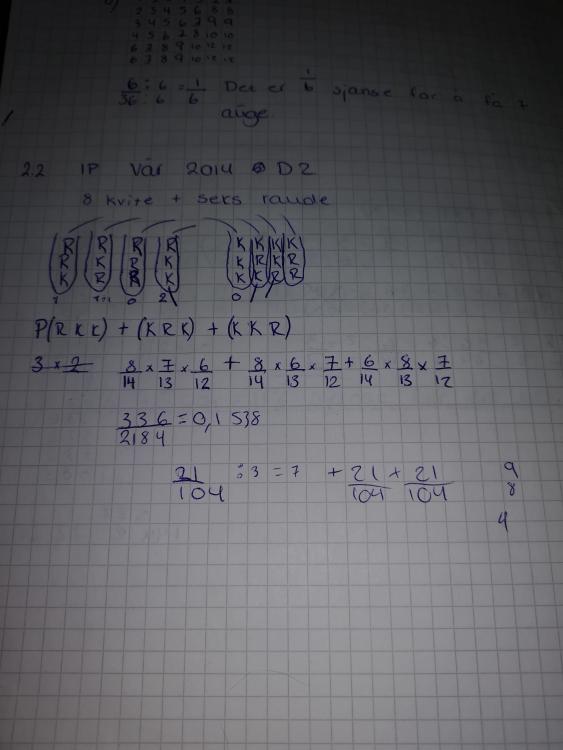 2 3 4 5 6 8 8
3 4 5 6 7 9 9
4 5 6 7 8 10 10
6 7 8 9 10 12 12
6 7 8 9 10 12 12
6/36 : 6/6 = 1/6 Det er 1/6 sjanse for å få 7
auge
2.2 1P Vår 2014 D2
8 kvite + seks raude
R R R R K K K K
R K R K K R K R
K R K K K R R
0 2 0
P(R K K) + (K R K) + (K K R)
3 × 2 8/14 × 7/13 × 6/12 + 8/14 × 6/13 × 7/12 + 6/14 × 8/13 × 7/12
336/2184 = 0,1538
21/104 : 3 = 7 + 21/104 + 21/104
9
8
4